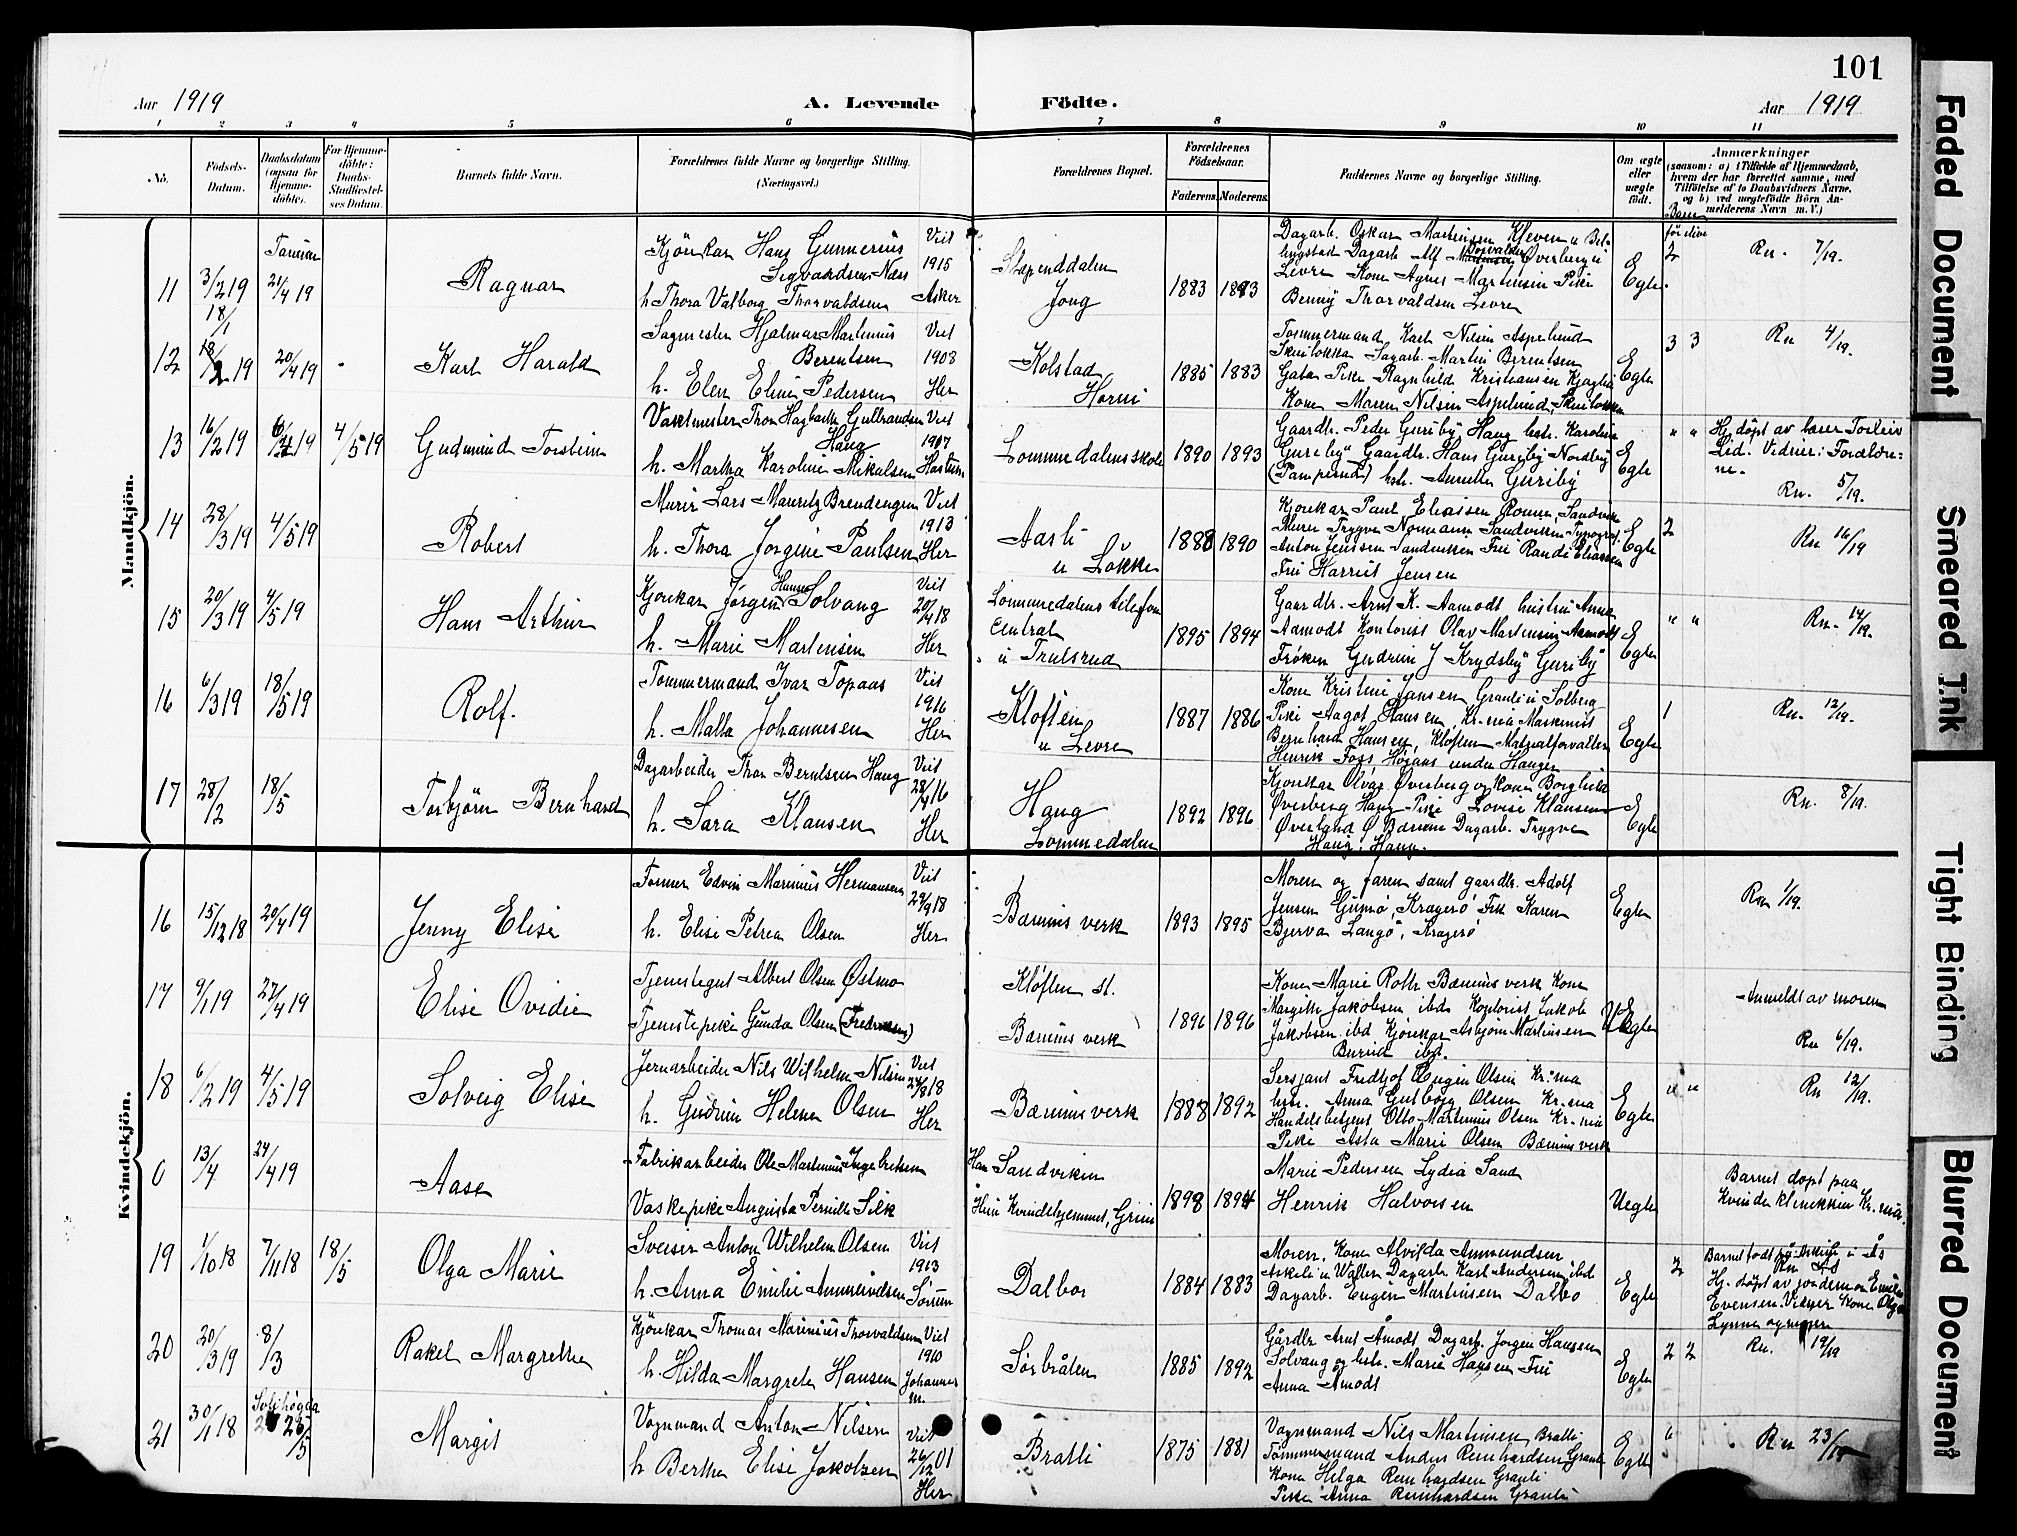 101
Aar 1919
A. Levende Födte.
Aar 1919
1 2 3 4 5 6 7 8 9 10 11
No.
Födsels-Datum.
Daabsdatum (ogsaa for Hjemmedöbte).
For Hjemmedöbte: Daabs-Stadfæstelses Datum.
Barnets fulde Navn.
Forældrenes fulde Navne og borgerlige Stilling. (Næringsvei.)
Forældrenes Bopæl.
Forældrenes Födselsaar.
Faderens. Moderens.
Faddernes Navne og borgerlige Stilling.
Om ægte eller uægte født.
Anmærkninger
(saasom: a) i Tilfælde af Hjemmedaab, hvem der har forrettet samme, med Tilföielse af to Daabsvidners Navne, og b) ved uægtefødte Börn Anmelderens Navn m. V.)
Mandkjön.
11 3/2 19 Tanum 21/4 19 Ragnar
Kjörekar Hans Gunnerius Sigvardsen Næss
h. Thora Valborg Thorvaldsen
Viet 1915 Asker
Slependdalen Jong
1883 1893
Dagarb. Oskar Martinsen Kleven u Bel-
lingstad Dagarb Alf Torvaldsen Överberg u
Levre Kone Agnes Martinsen Pike
Benny Thorvaldsen Levre
Egte 2 Rn. 7/19.
18/1
12 18/2 19 20/4 19 - Karl Harald
Sagmester Hjalmar Martinius Berentsen
h. Elen Eline Pedersen
Viet 1908 Her
Kolstad Horni
1885 1883
Tømmermand Karl Nilsen Aspelund
Skuilokka Sagarb. Martin Berentsen
Gata Pike Ragnhild Kristiansen Kjaglia
Kone Maren Nilsen Aspelund, Skuilokka
Egte 3 3 Rn 4/19.
13 16/2 19 6/4 19 4/5 19 Gudmund Torstein
Vaktmester Thor Hagbarth Gulbrandsen Haug
h. Martha Karoline Mikalsen
Viet 1917
Lommedalens skole
1890 1893
Gaardbr. Peder Guriby Haug hstr. Karoline
Guriby Gaardbr. Hans Guriby Nordby
(Pamperud) hstr. Anette Guriby
Egte " " Hj. døpt av lærer Torleiv
Lid. Vidner: Forældre-
ne.
Rn. 5/19.
14 28/3 19 4/5 19 Robert
Murer Lars Mauritz Brendengen
h. Thora Jorgine Paulsen
Viet 1913 Her
Aasli u Løkke
1888 1890
Kjorekar Paul Eliasen Romer, Sandviken
Murer Trygve Normann Sandviken Typograf
Anton Jenssen Sandviken Fru Randi Eliassen
Fru Harriet Jensen
Egte 2 Rn 16/19
15 20/3 19 4/5 19 Hans Arthur
Kjorekar Jörgen Hansen Solvang
h. Marie Martinsen
Viet 20/4 18 Her
Lommedalens telefon
Central
u Trulsrud
1895 1894
Gaardbr. Arnt K. Aamodt hustru Anna
Aamodt Kontorist Olav Martinsen Aamodt
Frøken Gudrun J Krydsby Guriby
Egte " " Rn. 14/19.
16 6/3 19 18/5 19 Rolf.
Tømmermand Ivar Topaas
h. Malla Johannesen
Viet 1916 Her
Kloften u Levre
1887 1886
Kone Kristine Jansen Grauli u Solberg
Pike Aagot Hansen, Kr.-nia Maskinist
Bernhard Hansen, Kloften Matrialforvalter
Henrik Foss Høgaas under Hauger
Egte 1 Rn. 12/19.
17 28/12 18/5 Torbjörn Bernhard
Dagarbeider Thor Berntsen Haug
h. Sara Klausen
Viet 28/4 16 Her
Haug Lommedalen
1892 1896
Kjorekar Olvar Överberg og kone Borghild
Överberg Haug Pike Lovise Klausen
Överland Ö Bærum Dagarb. Trygve
Haug, Haug.
Egte Rn. 8/19.
Kvindekjön.
16 15/12 18 20/4 19 Jenny Elise
Former Edvin Marinius Hermansen
h. Elise Petrea Olsen
Viet 29/9 18 Her
Bærums verk
1893 1895
Moren og faren samt gaardbr. Adolf
Jensen Gumø, Kragerø Frk Karen
Bjerva Langø, Kragerø
Egte Rn 1/19.
17 9/1 19 27/4 19 Elise Ovidie
Tjenestegut Albert Olsen Østmo
Tjenestepike Gunda Olsen (Fredriksen)
Kløften st.
Bærums verk
1896 1896
Kone Marie Roth Bærums verk Kone
Margith Jakobsen, ibd Kontorist Jakob
Jakobsen ibd Kjörekar Asbjorn Martinsen
Burud ibd.
Uegte Anmeldt av moren
Rn 6/19.
18 6/2 19 4/5 19 Solveig Elise
Jernarbeider Nils Wilhelm Nilsen
h. Gudrun Helene Olsen
Viet 24/8 18 Her
Bærums verk
1888 1892
Sersjant Fridtjof Eugen Olsen Kr.nia
hstr. Anna Gutborg Olsen Kr.nia
Handelsbetjent Otto Martinius Olsen Kr.nia
Pike Asta Marie Olsen Bærums verk
Egte " " Rn 12/19.
0 13/4 24/4 19 Aase
Fabrikarbeider Ole Martinius Ingebretsen
Vaskepike Augusta Pernille Silk
Han Sandviken
Hun Kvindehjemmet, Grini
1898 1894
Marie Pedersen Lydia Sand
Henrik Halvorsen
Uegte Barnet døpt paa
Kvindeklinikken Kr.nia.
19 1/10 18 7/11 18 18/5 Olga Marie
Sveiser Anton Wilhelm Olsen
h. Anna Emilie Ammundsen
Viet 1913 Sörum
Dalbo
1884 1883
Moren. Kone Alvilda Ammundsen
Askeli u Wallen Dagarb. Karl Andersen ibd
Dagarb. Eugen Martinsen Dalbo
Egte 2 Barnet født på Askeli i Ås
Hj. døpt av jordemor Emilie
Evensen. Vidner Kone Olga
20 20/3 19 8/3 Rakel Margrethe
Kjörekar Thomas Marinius Thorvaldsen
h. Hilda Margrete Hansen
Viet 1910 Johannes m.
Sørbråten
1885 1892
Gårdbr Arnt Åmodt Dagarb. Jorgen Hansen
Solvang og hstr. Marie Hansen Fru
Anna Åmodt
Egte 2 2 Rn. 19/19
21 30/1 18 Solihøgda 25/5 Margit
Vognmand Anton Nilsen
h Bertha Elise Jakobsen
Viet 26/12 01 Her
Bratli
1875 1881
Vognmand Nils Martinsen Bratli
Tømmermand Anders Reinhardsen Grauli
Kone Helga Reinhardsen Grauli
Pike Anna Reinhardsen Grauli
Egte 6 Rn 23/19
Faded Document
Smeared Ink
Tight Binding
Blurred Document